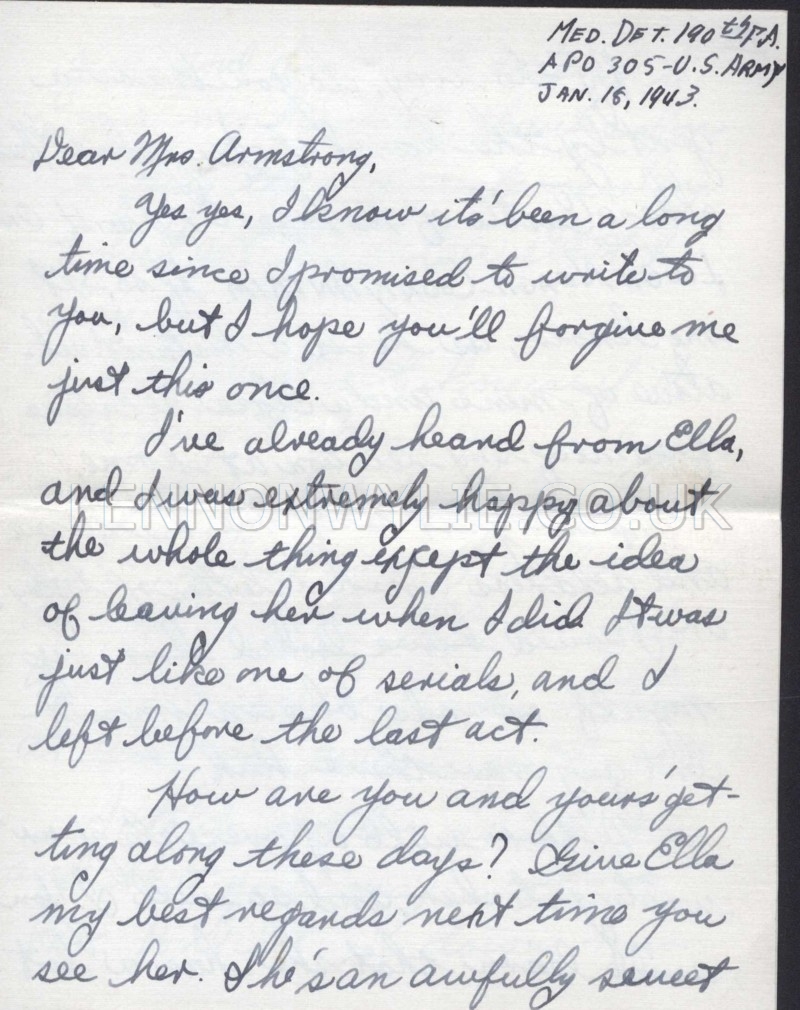 MED. DET. 190th F.A.
APO 305-U.S. ARMY
JAN. 16, 1943.
Dear Mrs. Armstrong,
Yes yes, I know it's been a long
time since I promised to write to
you, but I hope you'll forgive me
just this once.
I've already heard from Ella,
and I was extremely happy about
LENNONWYLIE.CO.UK
the whole thing except the idea
of leaving her when I did. It was
just like one of serials, and I
left before the last act.
How are you and yours get-
ting along these days? Give Ella
my best regards next time you
see her. She's an awfully sweet